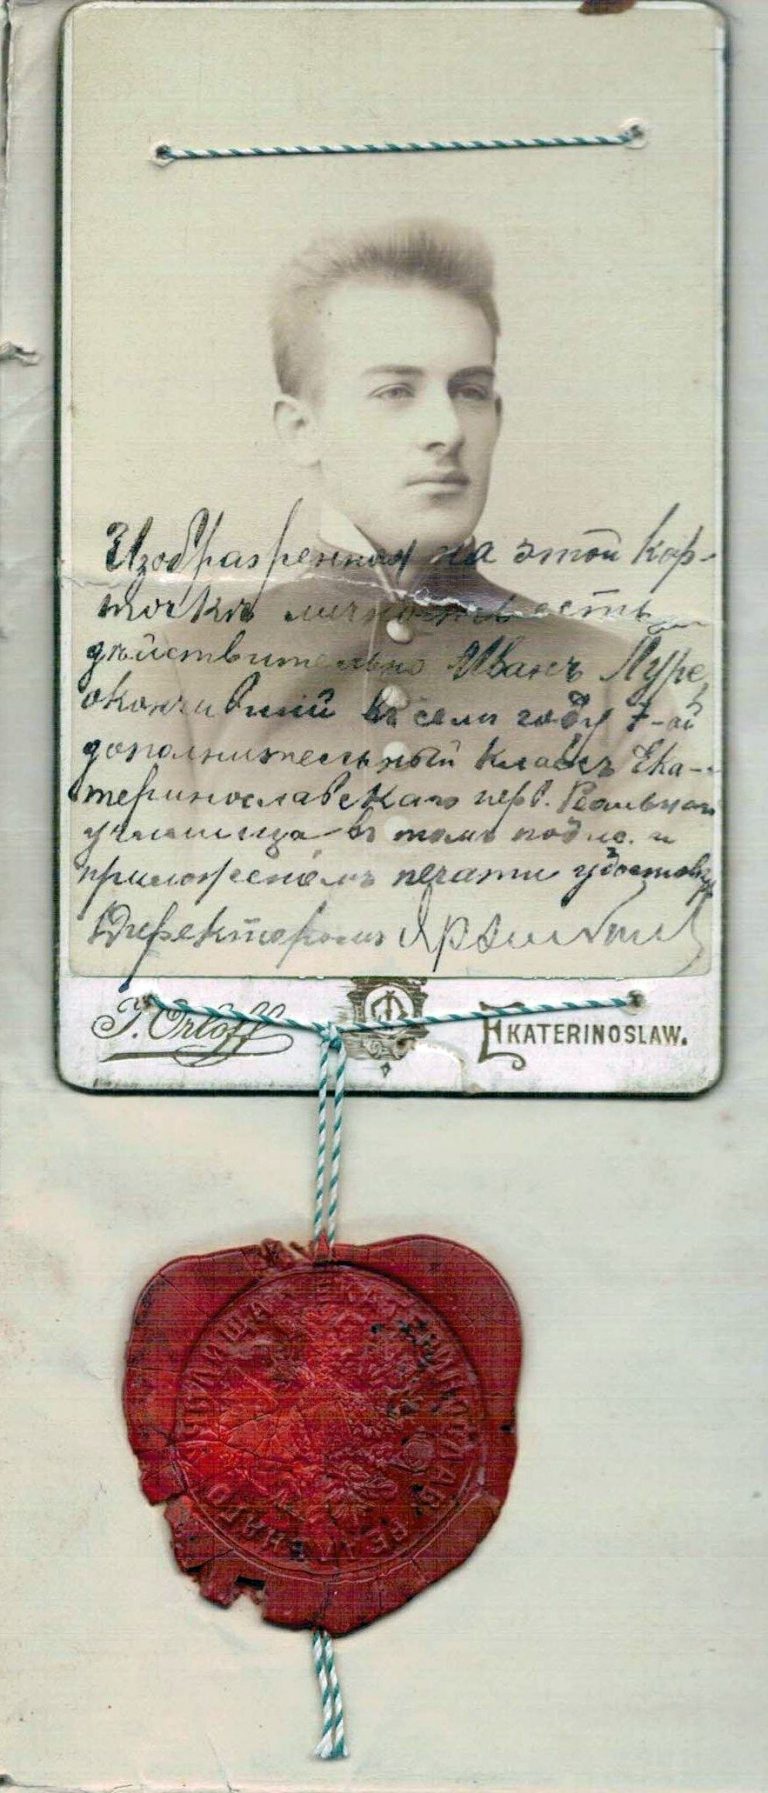 Изображенная на этой кар-
точкѣ личность есть
дѣйствительно Иванъ Муре,
окончившій въ семъ году 7-ой
дополнительный классъ Ека-
теринославскаго перв. Реальнаго
училища въ томъ подпс. и
приложеніемъ печати удостовѣр
Директоромъ
J. Orloff EKATERINOSLAW.
УЧИЛИЩА ЕКАТЕРИНОСЛАВ РЕАЛЬНАГО